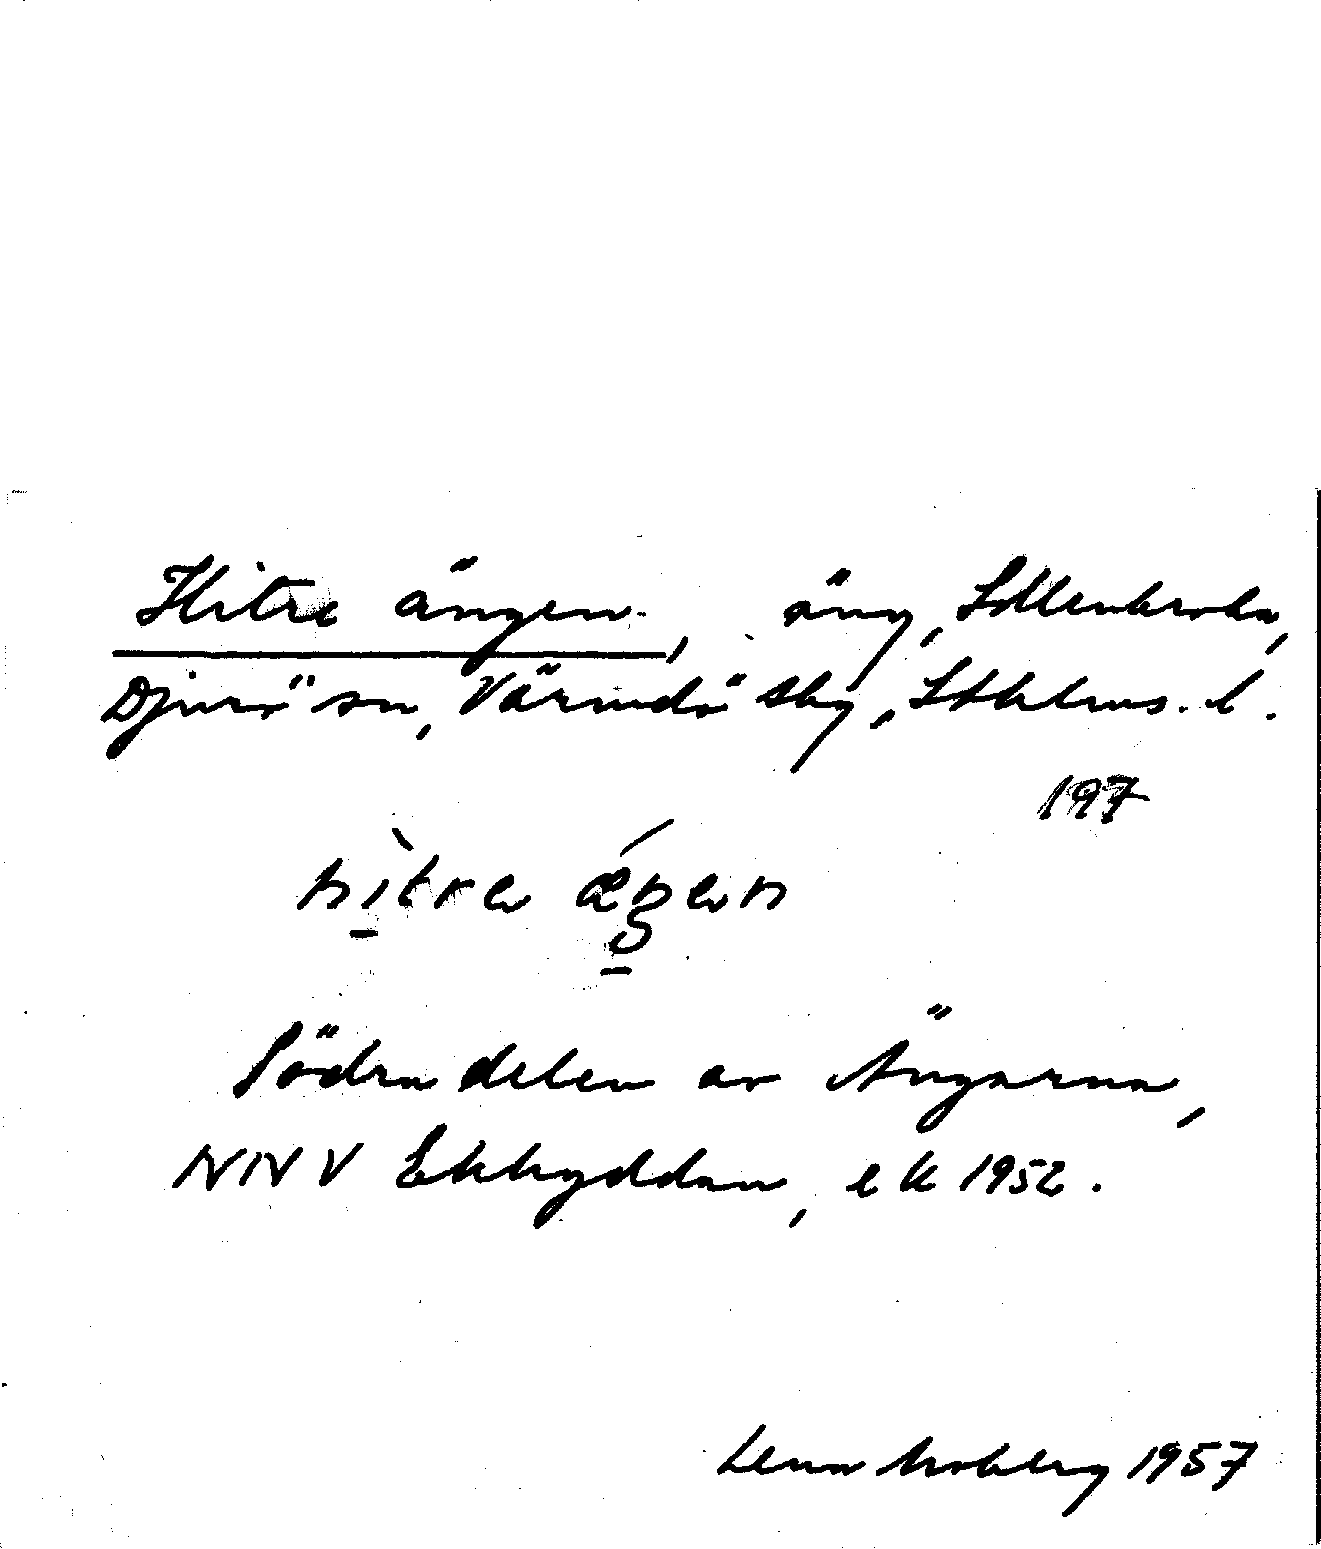 Hitre ängen, äng, Sollenkroka,
Djurö sn, Värmdö skg, Sthlms. l.
197
hìtra ǽŋan
Södra delen av Ängarna,
NNV Ekkyddan, ek 1952.
Lena Moberg 1957